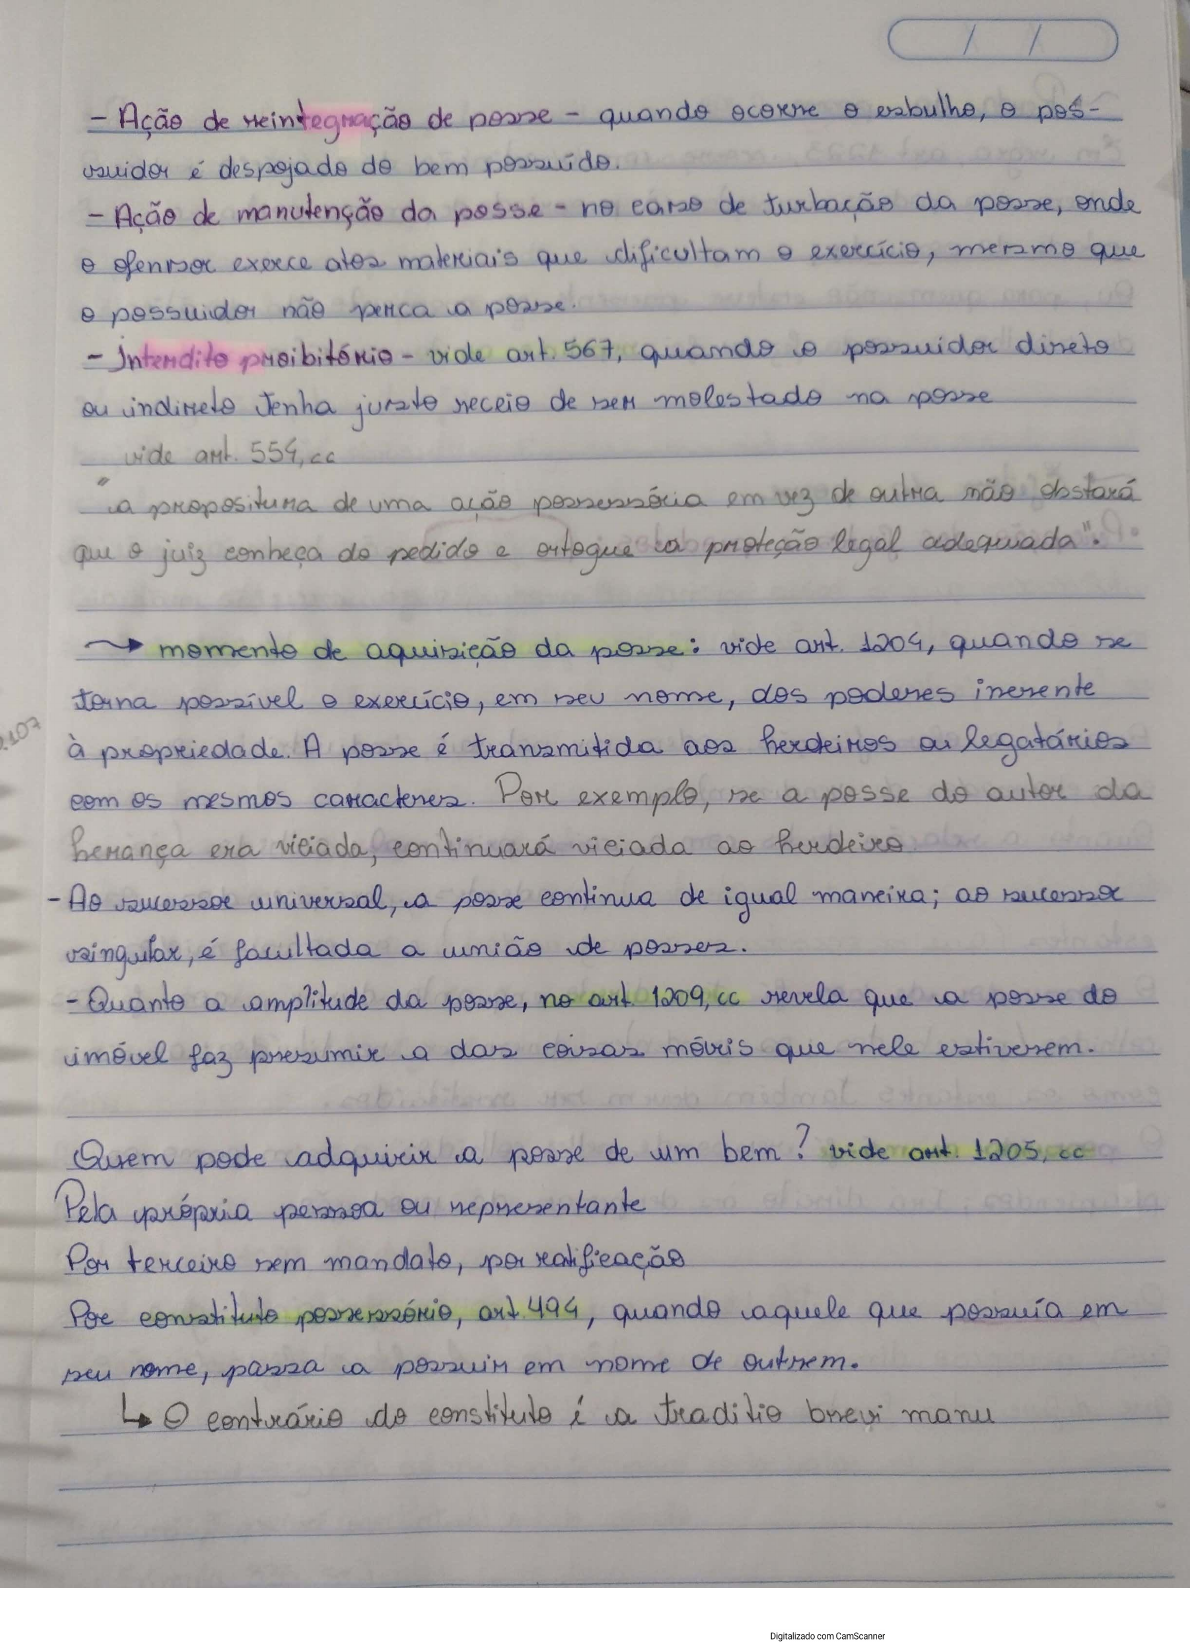 / /
- Ação de reintegração de posse - quando ocorre o esbulho, o pos-
suidor é despojado do bem possuído.
- Ação de manutenção da posse - no caso de turbação da posse, onde
o ofensor exerce atos materiais que dificultam o exercício, mesmo que
o possuidor não perca a posse.
- Interdito proibitório - vide art. 567, quando o possuidor direto
ou indireto tenha justo receio de ser molestado na posse
vide art. 554, cc
"a propositura de uma ação possessória em vez de outra não obstará
que o juiz conheça do pedido e ortogue a proteção legal adequada".
→ momento de aquisição da posse: vide art. 1204, quando se
torna possível o exercício, em seu nome, dos poderes inerente
à propriedade. A posse é transmitida aos herdeiros ou legatários
com os mesmos caracteres. Por exemplo, se a posse do autor da
herança era viciada, continuará viciada ao herdeiro
- Ao sucessor universal, a posse continua de igual maneira; ao sucessor
singular, é facultada a união de posses.
- Quanto a amplitude da posse, no art. 1209, cc revela que a posse do
imóvel faz presumir a das coisas móveis que nele estiverem.
Quem pode adquirir a posse de um bem? vide art. 1205, cc
Pela própria pessoa ou representante
Por terceiro sem mandato, por ratificação
Por constituto possessório, art. 494, quando aquele que possuía em
seu nome, passa a possuir em nome de outrem.
↳ O contrário do constituto é a traditio brevi manu
Digitalizado com CamScanner